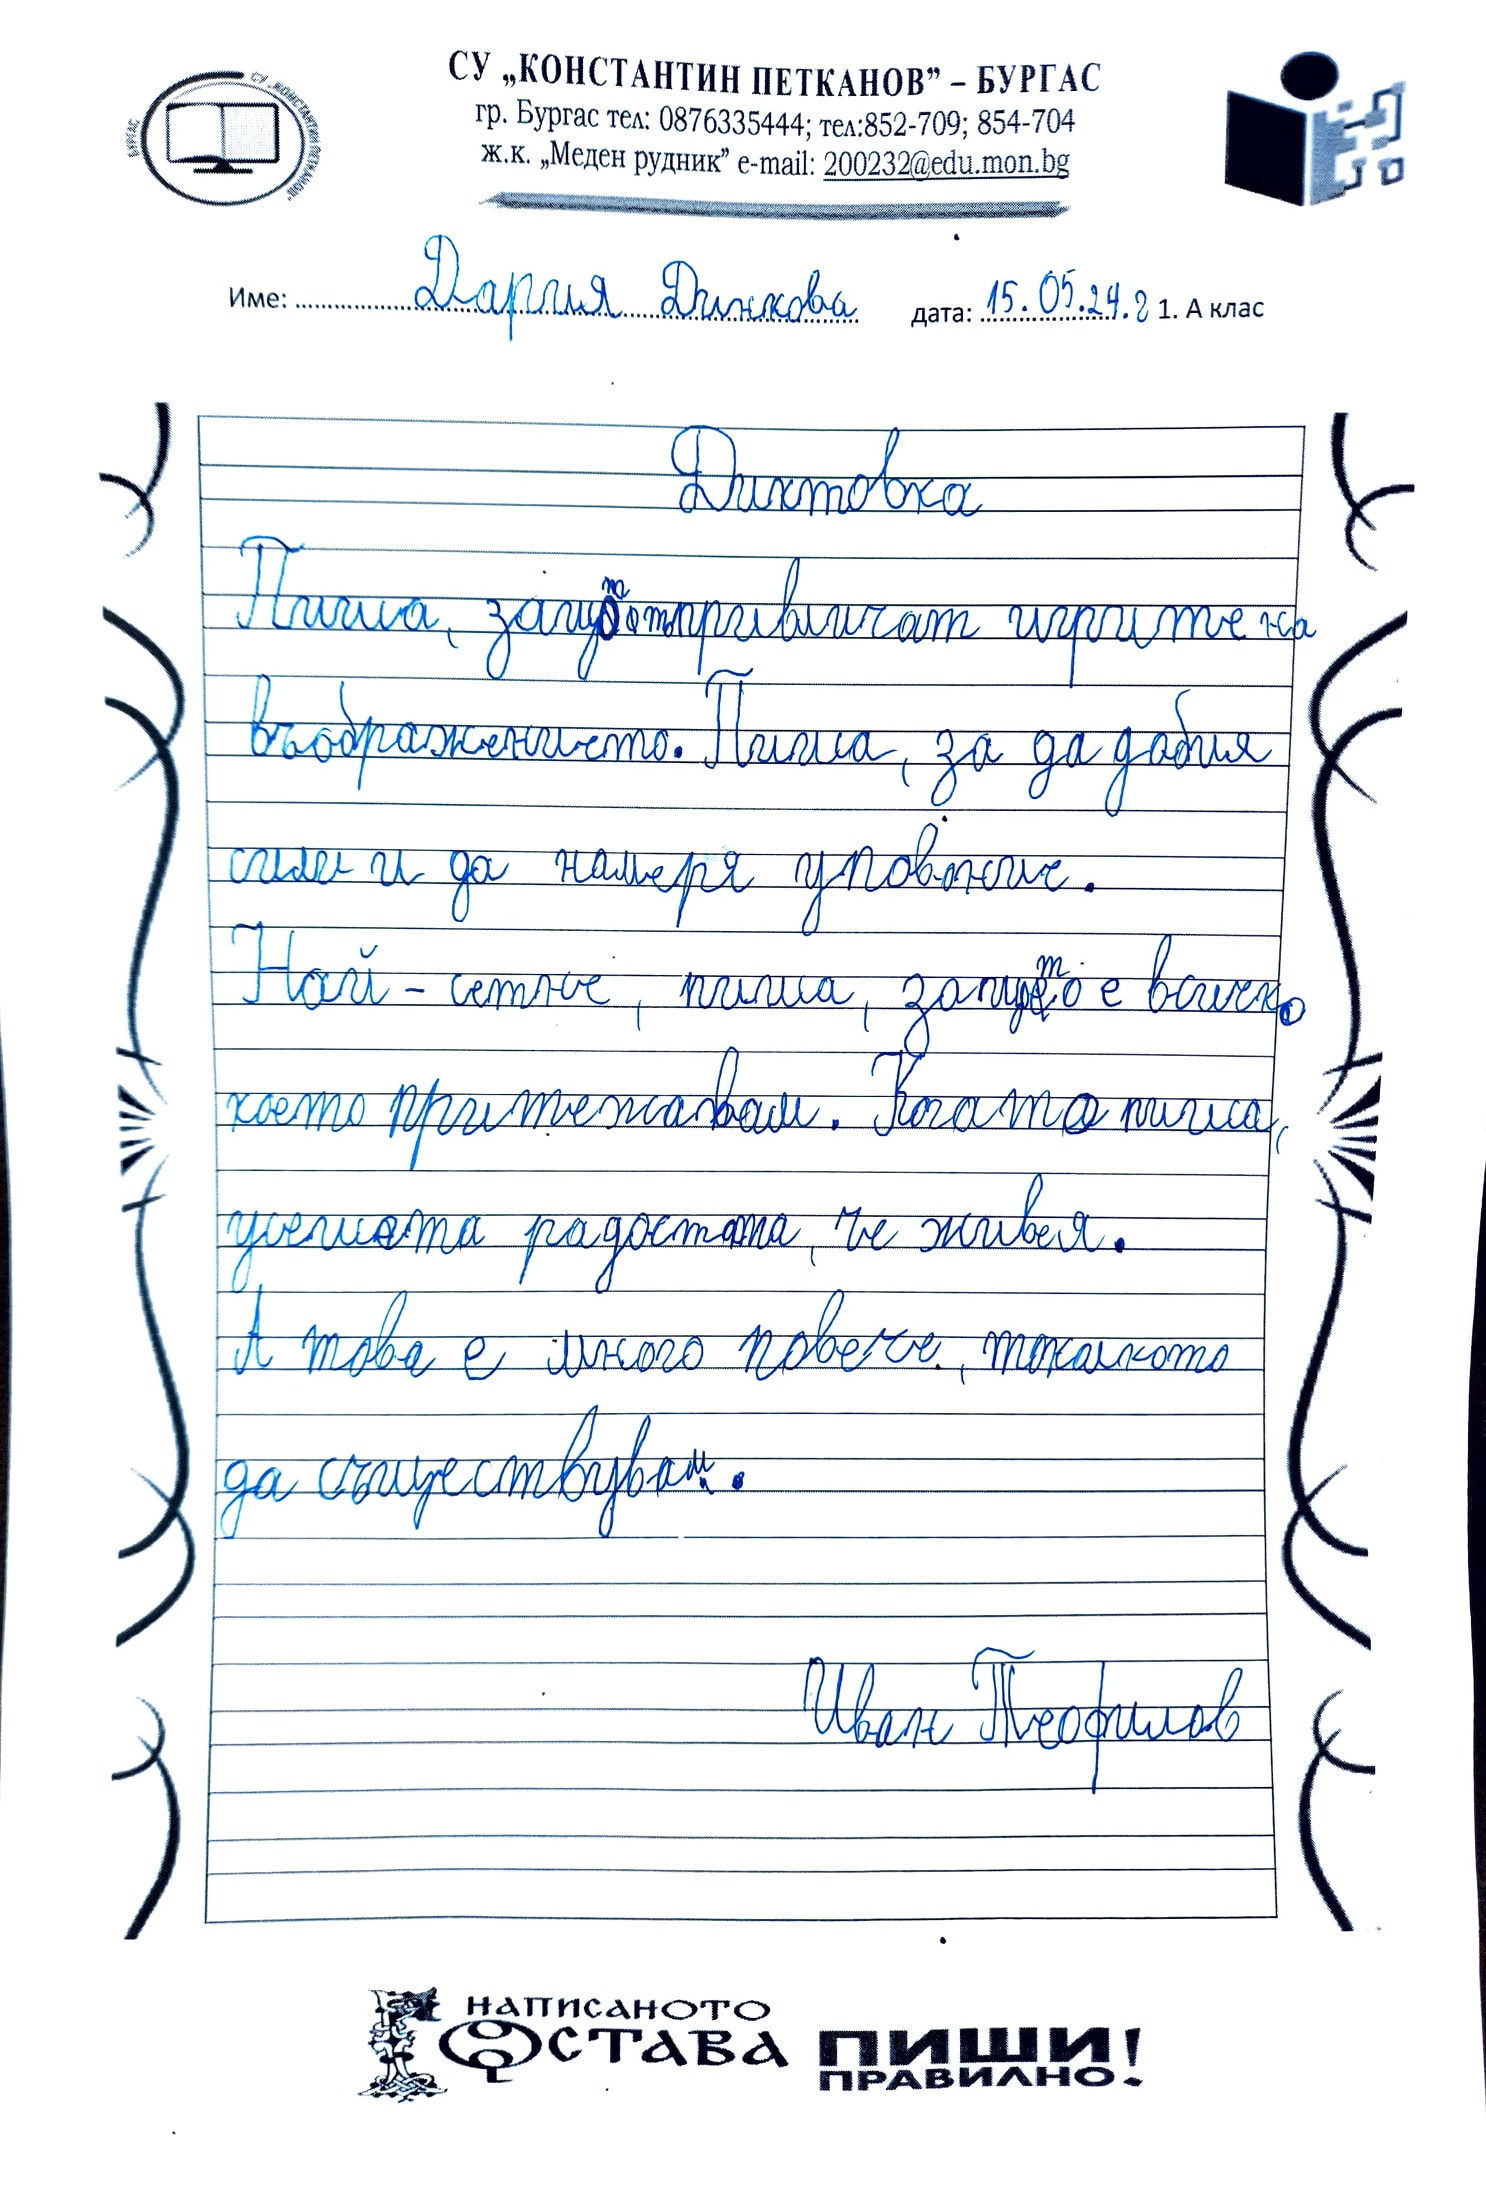 СУ „КОНСТАНТИН ПЕТКАНОВ” – БУРГАС
гр. Бургас тел: 0876335444; тел:852-709; 854-704
ж.к. „Меден рудник” e-mail: 200232@edu.mon.bg
БУРГАС СУ „КОНСТАНТИН ПЕТКАНОВ”
Име: Дария Динкова дата: 15.05.24.г 1. А клас
Диктовка
Пиша, защото привличат игрите на
въображението. Пиша, за да добия
сили и да намеря упование.
Най - сетне, пиша, защото е всичко
което притежавам. Когато пиша,
усещата радостта, че живея.
А това е много повече, токалкото
да съществувам.
Иван Теофилов
НАПИСАНОТО
ОСТАВА ПИШИ
ПРАВИЛНО!